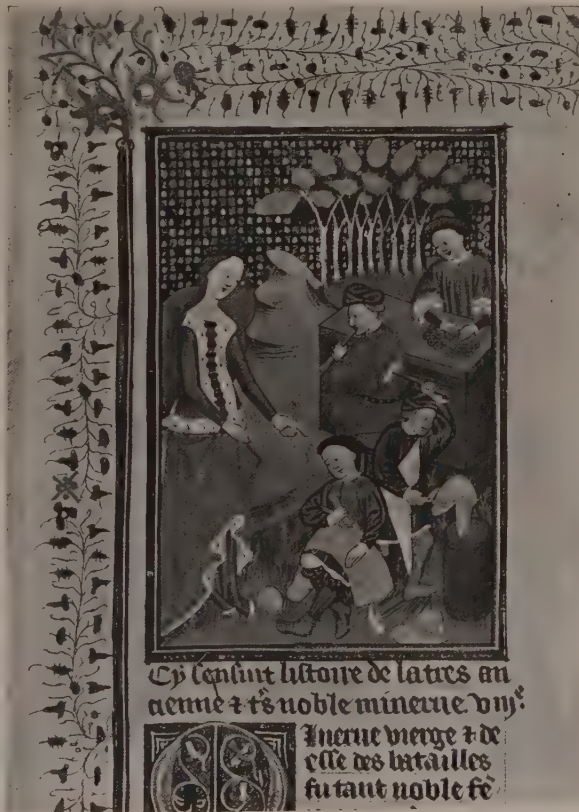 Cy sensuit listoire de la tres an
cienne & t̃s noble minerue. viij.e
Minerue vierge & de
esse des batailles
fu tant noble fẽ